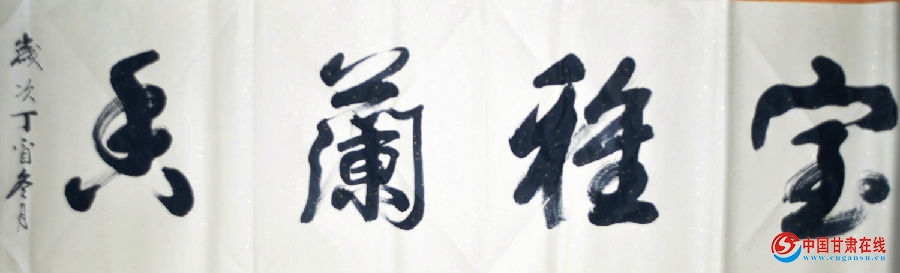 室雅蘭香
歲次丁酉冬月
中国甘肃在线
www.cngansu.cn